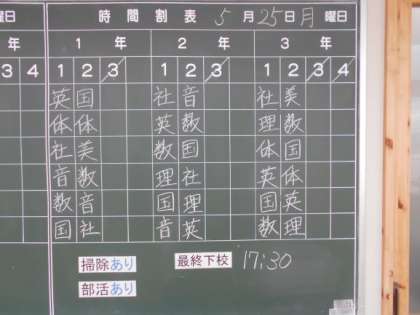 曜日 時間割表 5月25日月曜日
年 1年 2年 3年
3 4 1 2 3 1 2 3 1 2 3 4
英 国 社 音 社 美
体 体 英 数 理 数
社 美 数 国 体 国
音 数 理 社 英 体
数 音 国 理 国 英
国 社 音 英 数 理
掃除あり 最終下校 17:30
部活あり